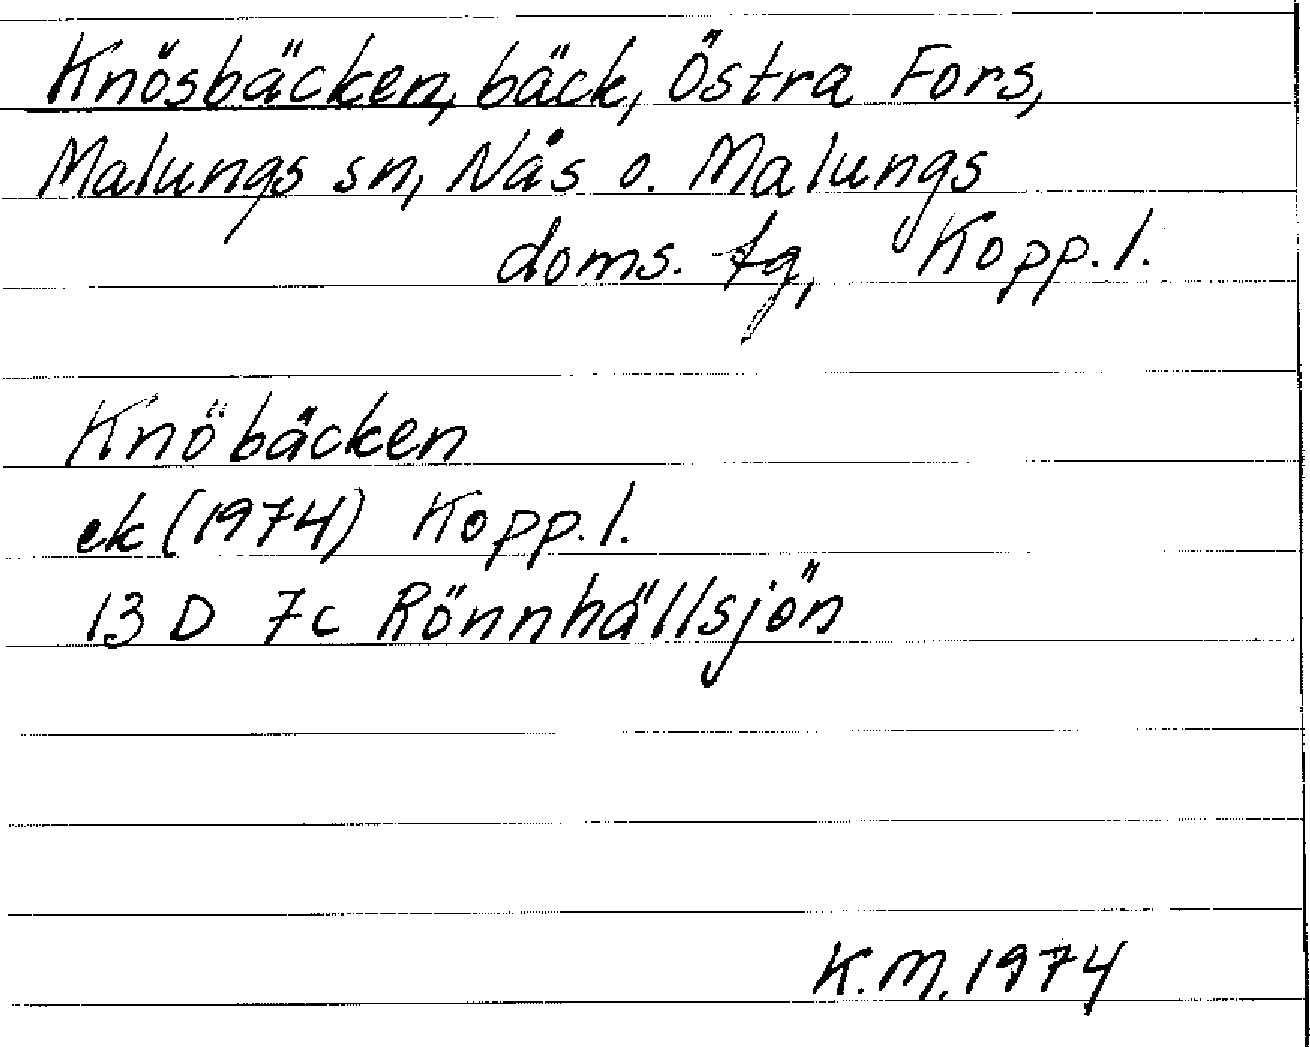 Knösbäcken, bäck, Östra Fors,
Malungs sn, Nås o. Malungs
doms. tg, Kopp. l.
Knöbäcken
ek (1974) Kopp. l.
13 D 7c Rönnhällsjön
K.M. 1974